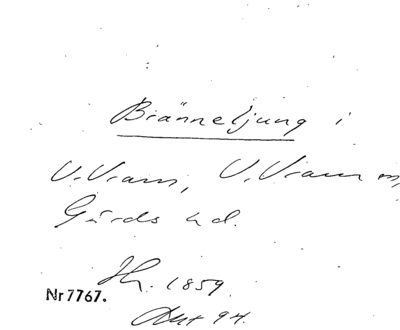 Bränneljung i
V. Vram, V. Vram m,
Gärds hd.
1859.
Nr 7767.
Akt 94.